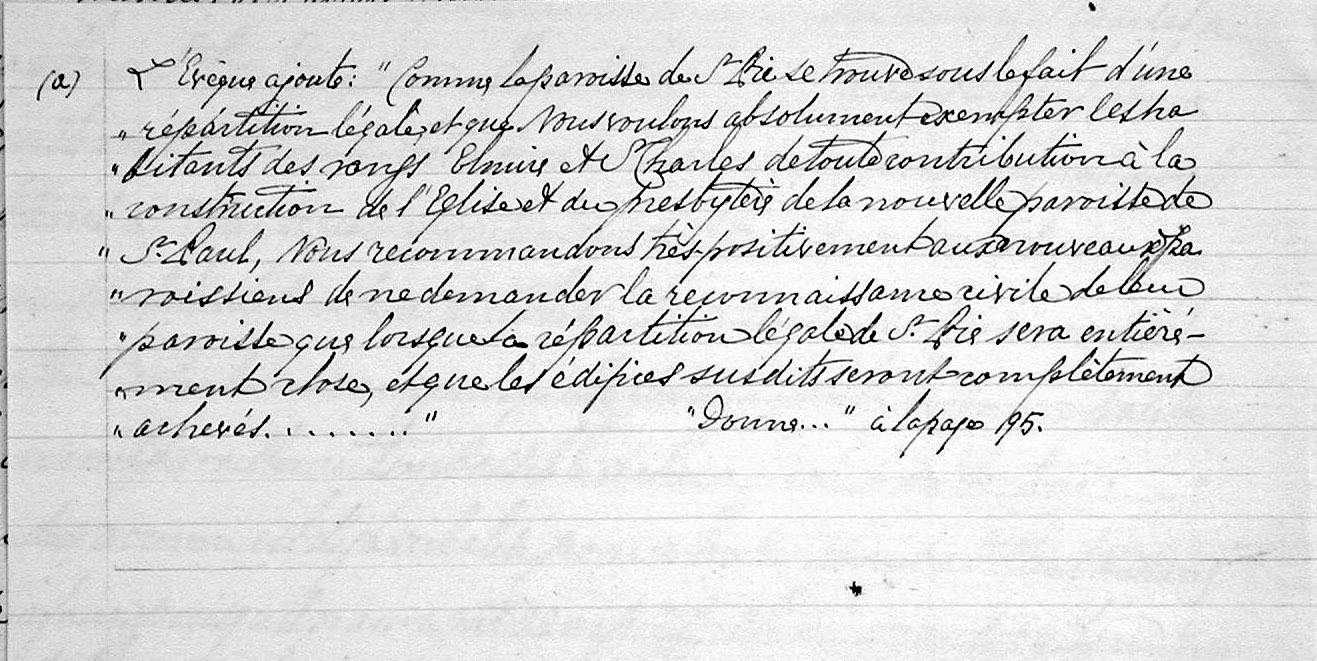 (a) L'Evêque ajoute: "Comme la paroisse de St Pie se trouve sous le fait d'une
" répartition légale, et que Nous voulons absolument exempter les ha
" bitants des rangs Elmire et St Charles de toute contribution à la
" construction de l'Eglise et du presbytère de la nouvelle paroisse de
" St Paul, Nous recommandons très positivement aux nouveaux pa
" roissiens de ne demander la reconnaissance civile de leur
" paroisse que lorsque la répartition légale de St Pie sera entière-
" ment close, et que les édifices susdits seront complètement
" achevés. . . . . . . . . " "Donne..." à la page 195.